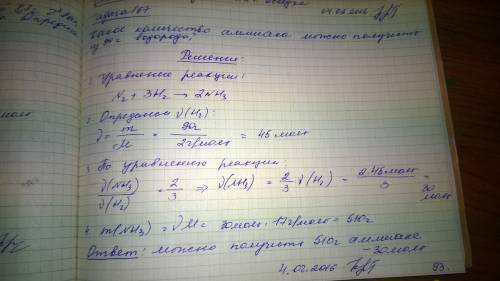 Задача №7 04.02.2016
Какое количество аммиака можно получить
из 90г водорода?
Решение:
1. Уравнение реакции:
N₂ + 3H₂ → 2NH₃
2. Определяем ν(H₂):
ν = m/M = 90г/2г/моль = 45 моль
3. По уравнению реакции:
ν(NH₃)/ν(H₂) = 2/3 ⇒ ν(NH₃) = 2/3 ν(H₂) = 2·45моль/3 = 30 моль
4. m(NH₃) = νM = 30моль · 17г/моль = 510г
Ответ: можно получить 510г аммиака
-30моль
4.02.2016 93.